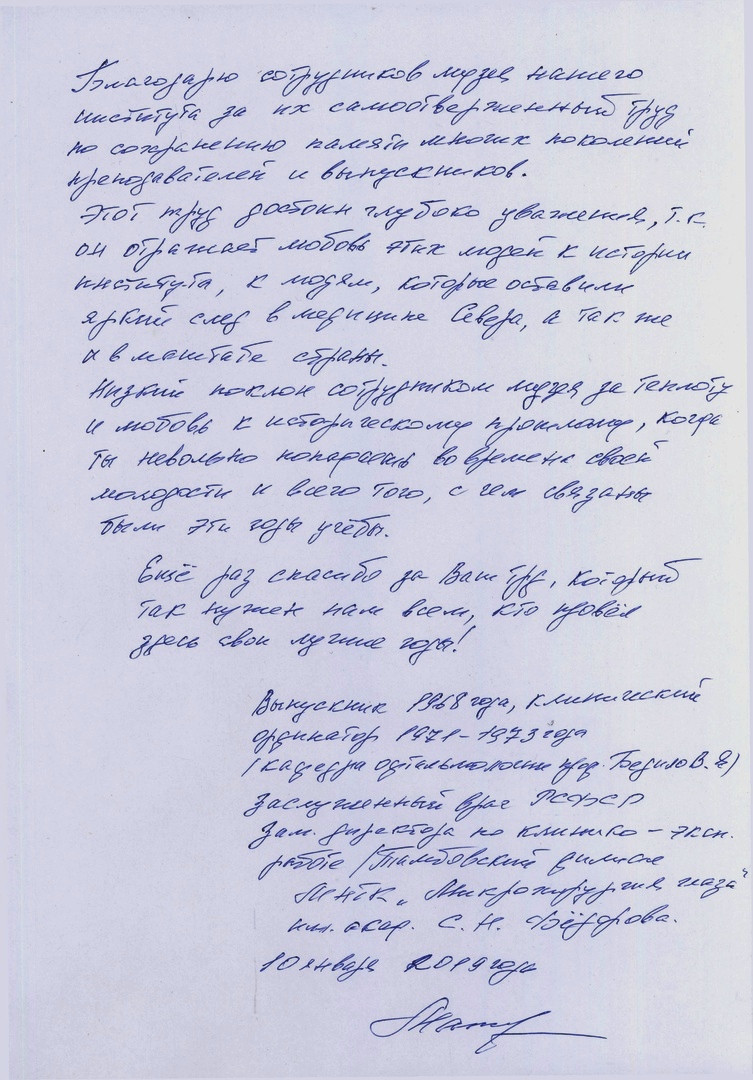 Благодарю сотрудников музея нашего
института за их самоотверженный труд
по сохранению памяти многих поколений
преподавателей и выпускников.
Этот труд достоин глубоко уважения, т.к.
он отражает любовь этих людей к истории
института, к людям, которые оставили
яркий след в медицине Севера, а так же
и в масштабе страны.
Низкий поклон сотрудником музея за теплоту
и любовь к историческому прошлому, когда
ты невольно попадаешь во времена своей
молодости и всего того, с чем связаны
были эти годы учёбы.
Ещё раз спасибо за Ваш труд, который
так нужен нам всем, кто провёл
здесь свои лучшие годы!
Выпускник 1968 года, клинический
ординатор 1971-1973 года
(кафедра офтальмологии проф. Бедило В.Я)
Заслуженный врач РСФСР
Зам. директора по клинико – эксп.
работе /Тамбовский филиал
МНТК „Микрохирургия глаза"
им. акад. С.Н. Фёдорова.
10 января 2019 года